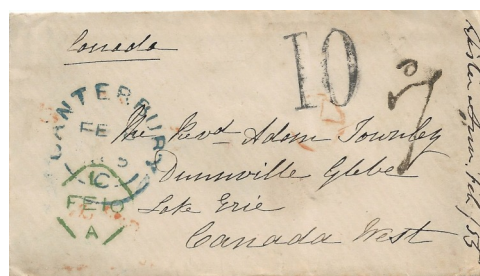 Canada
10
7
CANTERBURY
FE
The Revd Adam Townley
Dunnville Glebe
Lake Erie
Canada West
C
FE 10
A